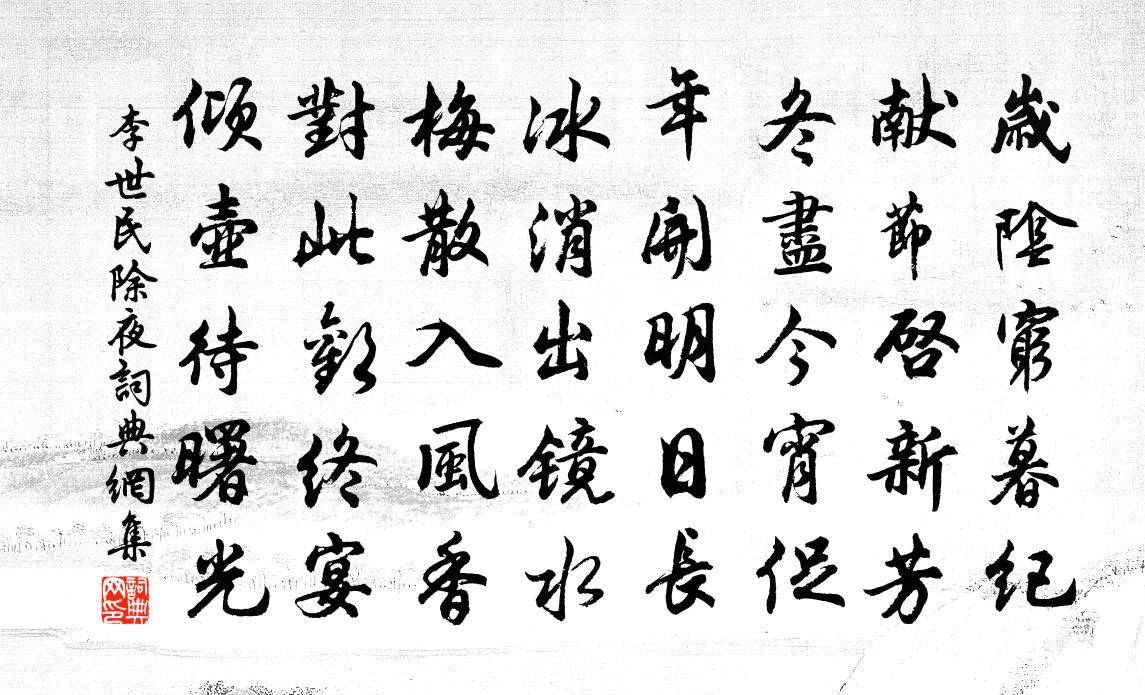 歲陰窮暮紀
献節啓新芳
冬盡今宵促
年開明日長
冰消出鏡水
梅散入風香
對此歡終宴
傾壺待曙光
李世民除夜詞典網集
詞典网印